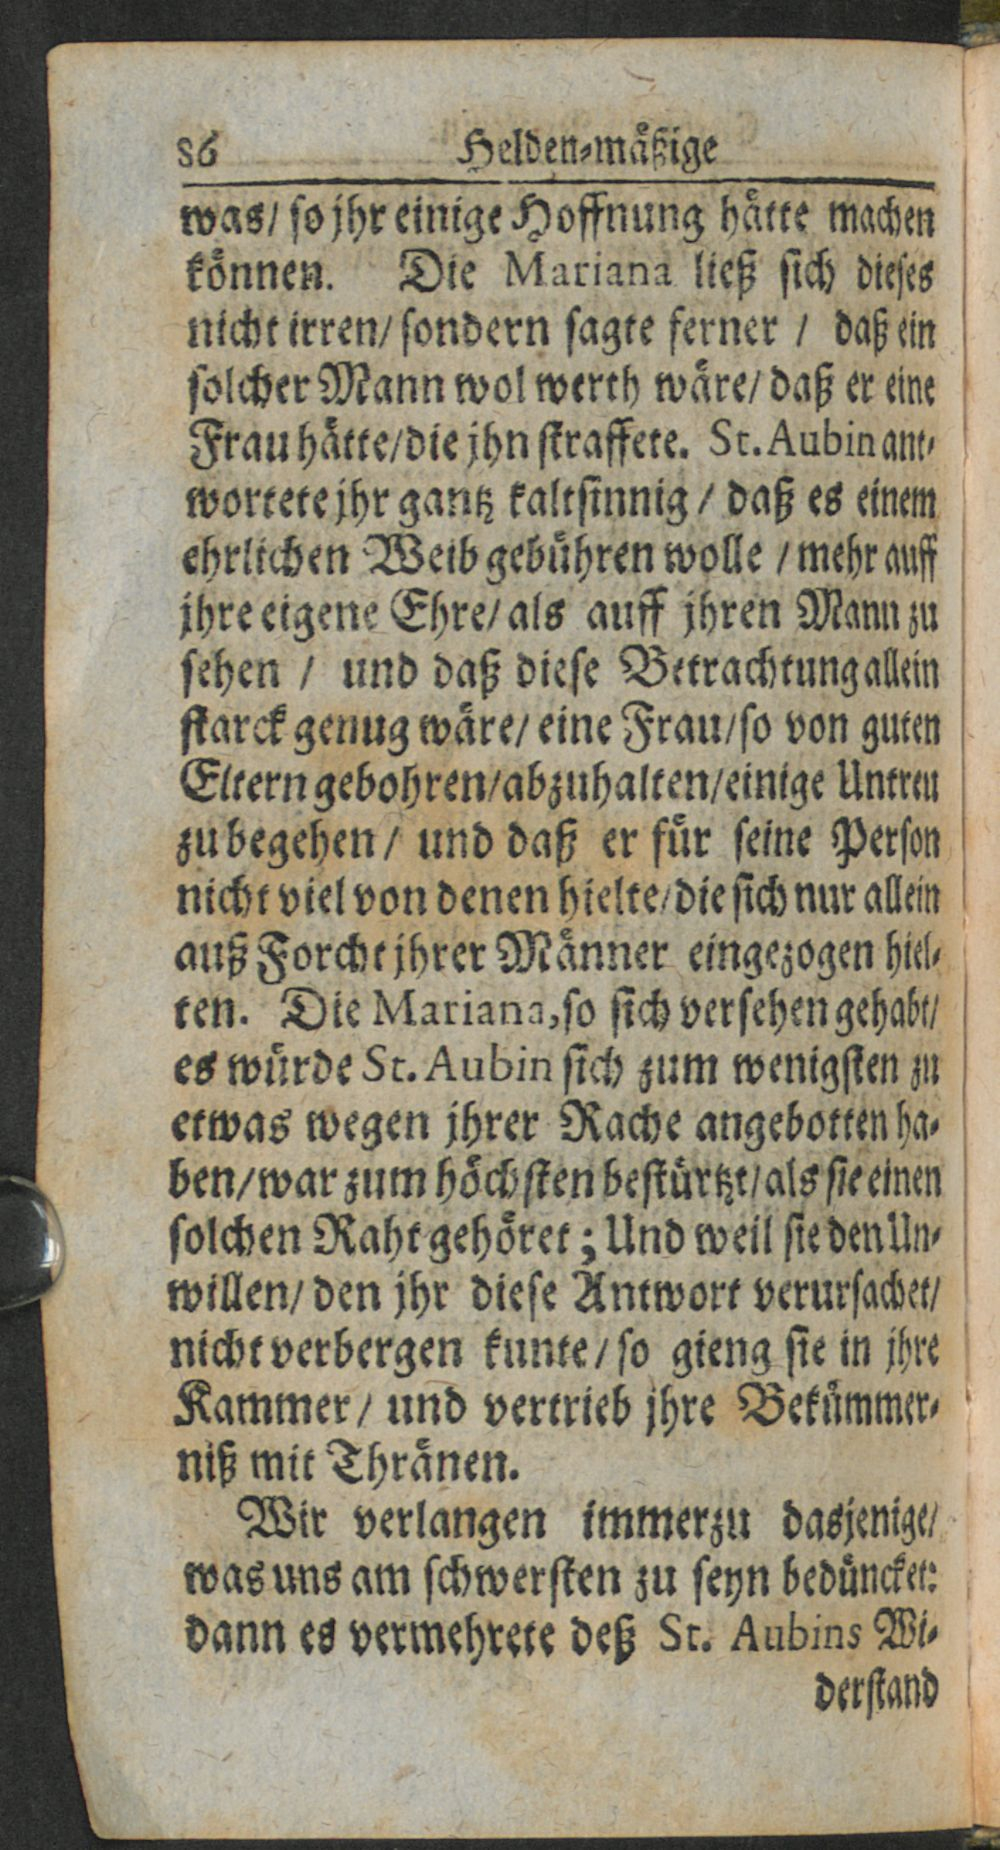 86 Helden-mäßige
was/ so jhr einige Hoffnung hätte machen
können. Die Mariana ließ sich dieses
nicht irren/ sondern sagte ferner / daß ein
solcher Mann wol werth wäre/ daß er eine
Frau hätte/ die jhn straffete. St. Aubin ant-
wortete jhr gantz kaltsinnig / daß es einem
ehrlichen Weib gebühren wolle / mehr auff
jhre eigene Ehre/ als auff jhren Mann zu
sehen / und daß diese Betrachtung allein
starck genug wäre/ eine Frau/ so von guten
Eltern gebohren/ abzuhalten/ einige Untreu
zu begehen / und daß er für seine Person
nicht viel von denen hielte/ die sich nur allein
auß Forcht jhrer Männer eingezogen hiel-
ten. Die Mariana, so sich versehen gehabt/
es würde St. Aubin sich zum wenigsten zu
etwas wegen jhrer Rache angebotten ha-
ben/ war zum höchsten bestürtzt/ als sie einen
solchen Raht gehöret; Und weil sie den Un-
willen/ den jhr diese Antwort verursachet/
nicht verbergen kunte / so gieng sie in jhre
Kammer / und vertrieb jhre Bekümmer-
niß mit Thränen.
Wir verlangen immerzu dasjenige/
was uns am schwersten zu seyn bedüncket:
dann es vermehrete deß St. Aubins Wi-
derstand